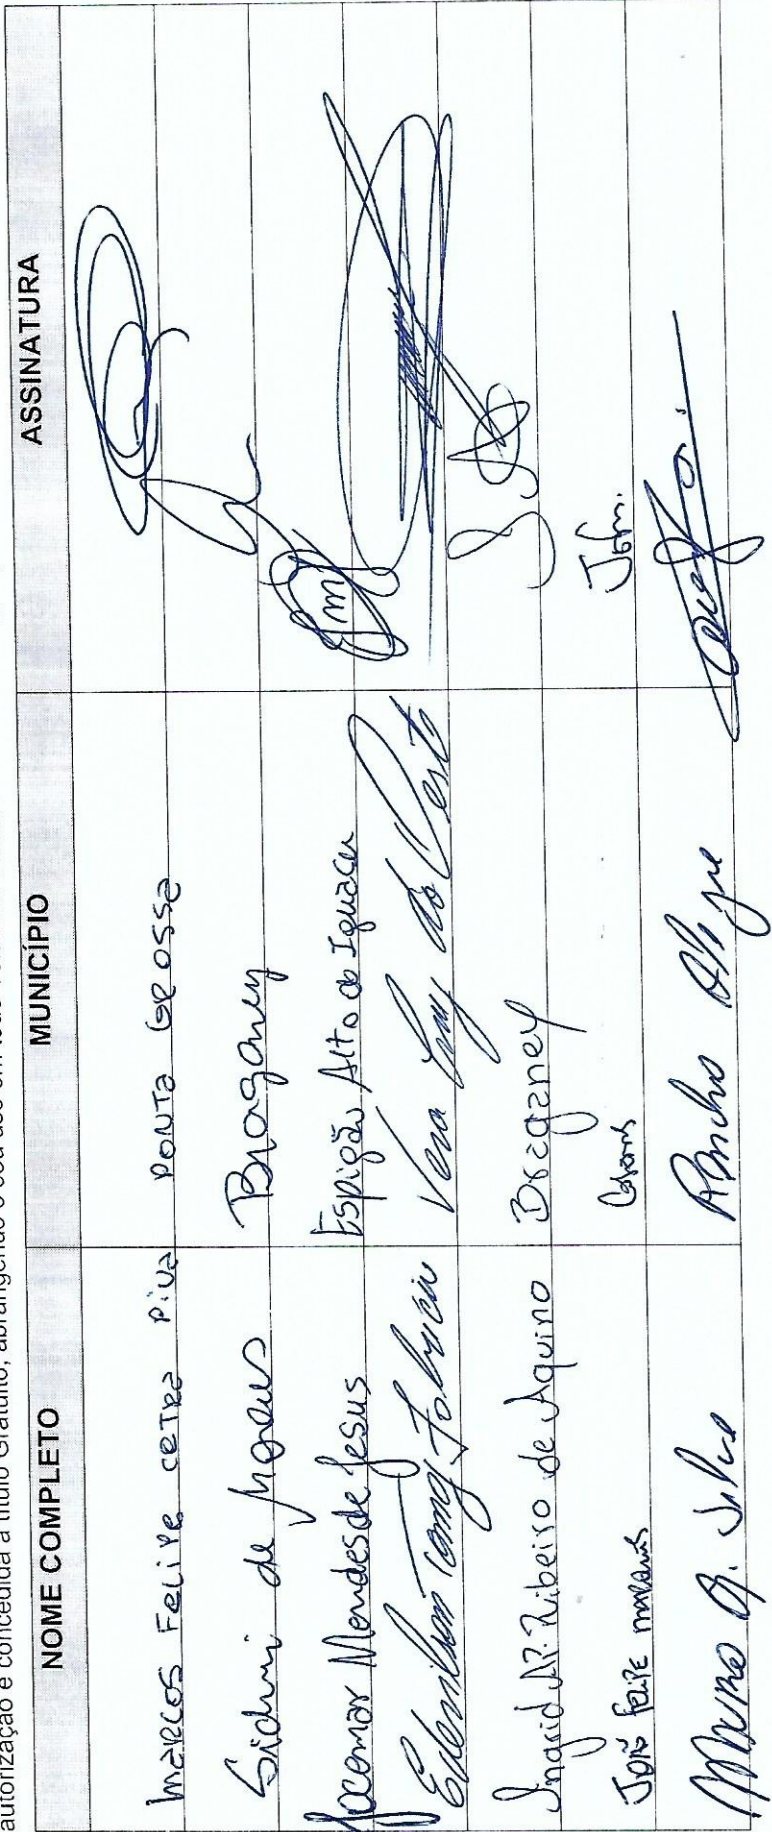 autorização é concedida a título Gratuito, abrangendo o seu uso em todo
NOME COMPLETO MUNICÍPIO ASSINATURA
Marcos Felipe Cetra Piva Ponta Grossa
Sidnei de Moraes Braganey
Jocemar Mendes de Jesus Espigão Alto do Iguaçu
Edenilson Fabricio Vera Cruz do Oeste
Ingrid Ap. Ribeiro de Aquino Braganey
João Felipe
Silva Rancho Alegre